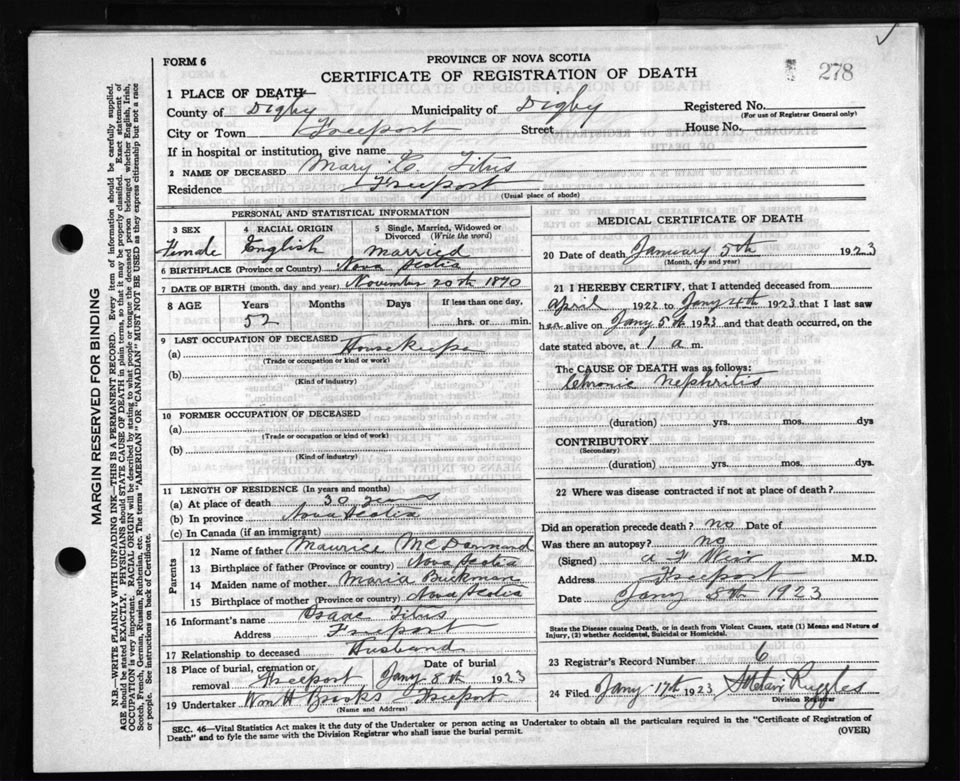 FORM 6
PROVINCE OF NOVA SCOTIA
CERTIFICATE OF REGISTRATION OF DEATH
278
1 PLACE OF DEATH—
County of Digby Municipality of Digby Registered No.
(For use of Registrar General only)
City or Town Freeport Street House No.
If in hospital or institution, give name
2 NAME OF DECEASED Mary E Titus
Residence Freeport
(Usual place of abode)
PERSONAL AND STATISTICAL INFORMATION
3 SEX 4 RACIAL ORIGIN 5 Single, Married, Widowed or Divorced (Write the word)
Female English Married
6 BIRTHPLACE (Province or Country) Nova Scotia
7 DATE OF BIRTH (month, day and year) November 20th 1870
8 AGE Years Months Days If less than one day,
52 hrs. or min.
9 LAST OCCUPATION OF DECEASED
(a) Housekeeper
(Trade or occupation or kind of work)
(b)
(Kind of industry)
10 FORMER OCCUPATION OF DECEASED
(a)
(Trade or occupation or kind of work)
(b)
(Kind of industry)
11 LENGTH OF RESIDENCE (In years and months)
(a) At place of death 30 years
(b) In province Nova Scotia
(c) In Canada (if an immigrant)
Parents
12 Name of father Maurice
13 Birthplace of father (Province or country) Nova Scotia
14 Maiden name of mother Maria
15 Birthplace of mother (Province or country) Nova Scotia
16 Informant's name Isaac Titus
Address Freeport
17 Relationship to deceased Husband
18 Place of burial, cremation or removal Freeport Date of burial Jany 8th 1923
19 Undertaker Wm H Brooks Freeport
(Name and Address)
MEDICAL CERTIFICATE OF DEATH
20 Date of death January 5th 1923
(Month, day and year)
21 I HEREBY CERTIFY, that I attended deceased from
April 1922 to Jany 4th 1923 that I last saw
her alive on Jany 5th 1923 and that death occurred, on the
date stated above, at 1 a m.
The CAUSE OF DEATH was as follows:
Chronic Nephritis
(duration) yrs. mos. dys
CONTRIBUTORY
(Secondary)
(duration) yrs. mos. dys.
22 Where was disease contracted if not at place of death?
Did an operation precede death? no Date of
Was there an autopsy? no
(Signed) A F Weir M.D.
Address Freeport
Date Jany 8th 1923
State the Disease causing Death, or in death from Violent Causes, state (1) Means and Nature of
Injury, (2) whether Accidental, Suicidal or Homicidal.
23 Registrar's Record Number 6
24 Filed Jany 17th 1923 Ruggles
Division Registrar
SEC. 46—Vital Statistics Act makes it the duty of the Undertaker or person acting as Undertaker to obtain all the particulars required in the "Certificate of Registration of
Death" and to fyle the same with the Division Registrar who shall issue the burial permit.
(OVER)
MARGIN RESERVED FOR BINDING
N.B.—WRITE PLAINLY WITH UNFADING INK—THIS IS A PERMANENT RECORD. Every item of information should be carefully supplied.
AGE should be stated EXACTLY. PHYSICIANS should STATE CAUSE OF DEATH in plain terms, so that it may be properly classified. Exact statement of
OCCUPATION is very important. RACIAL ORIGIN will be described by stating to what people or tongue the deceased person belonged whether English, Irish,
Scotch, French, German, Russian, Ruthenian, etc. The terms "AMERICAN" OR "CANADIAN" MUST NOT BE USED as they express citizenship but not a race
or people. See instructions on back of Certificate.